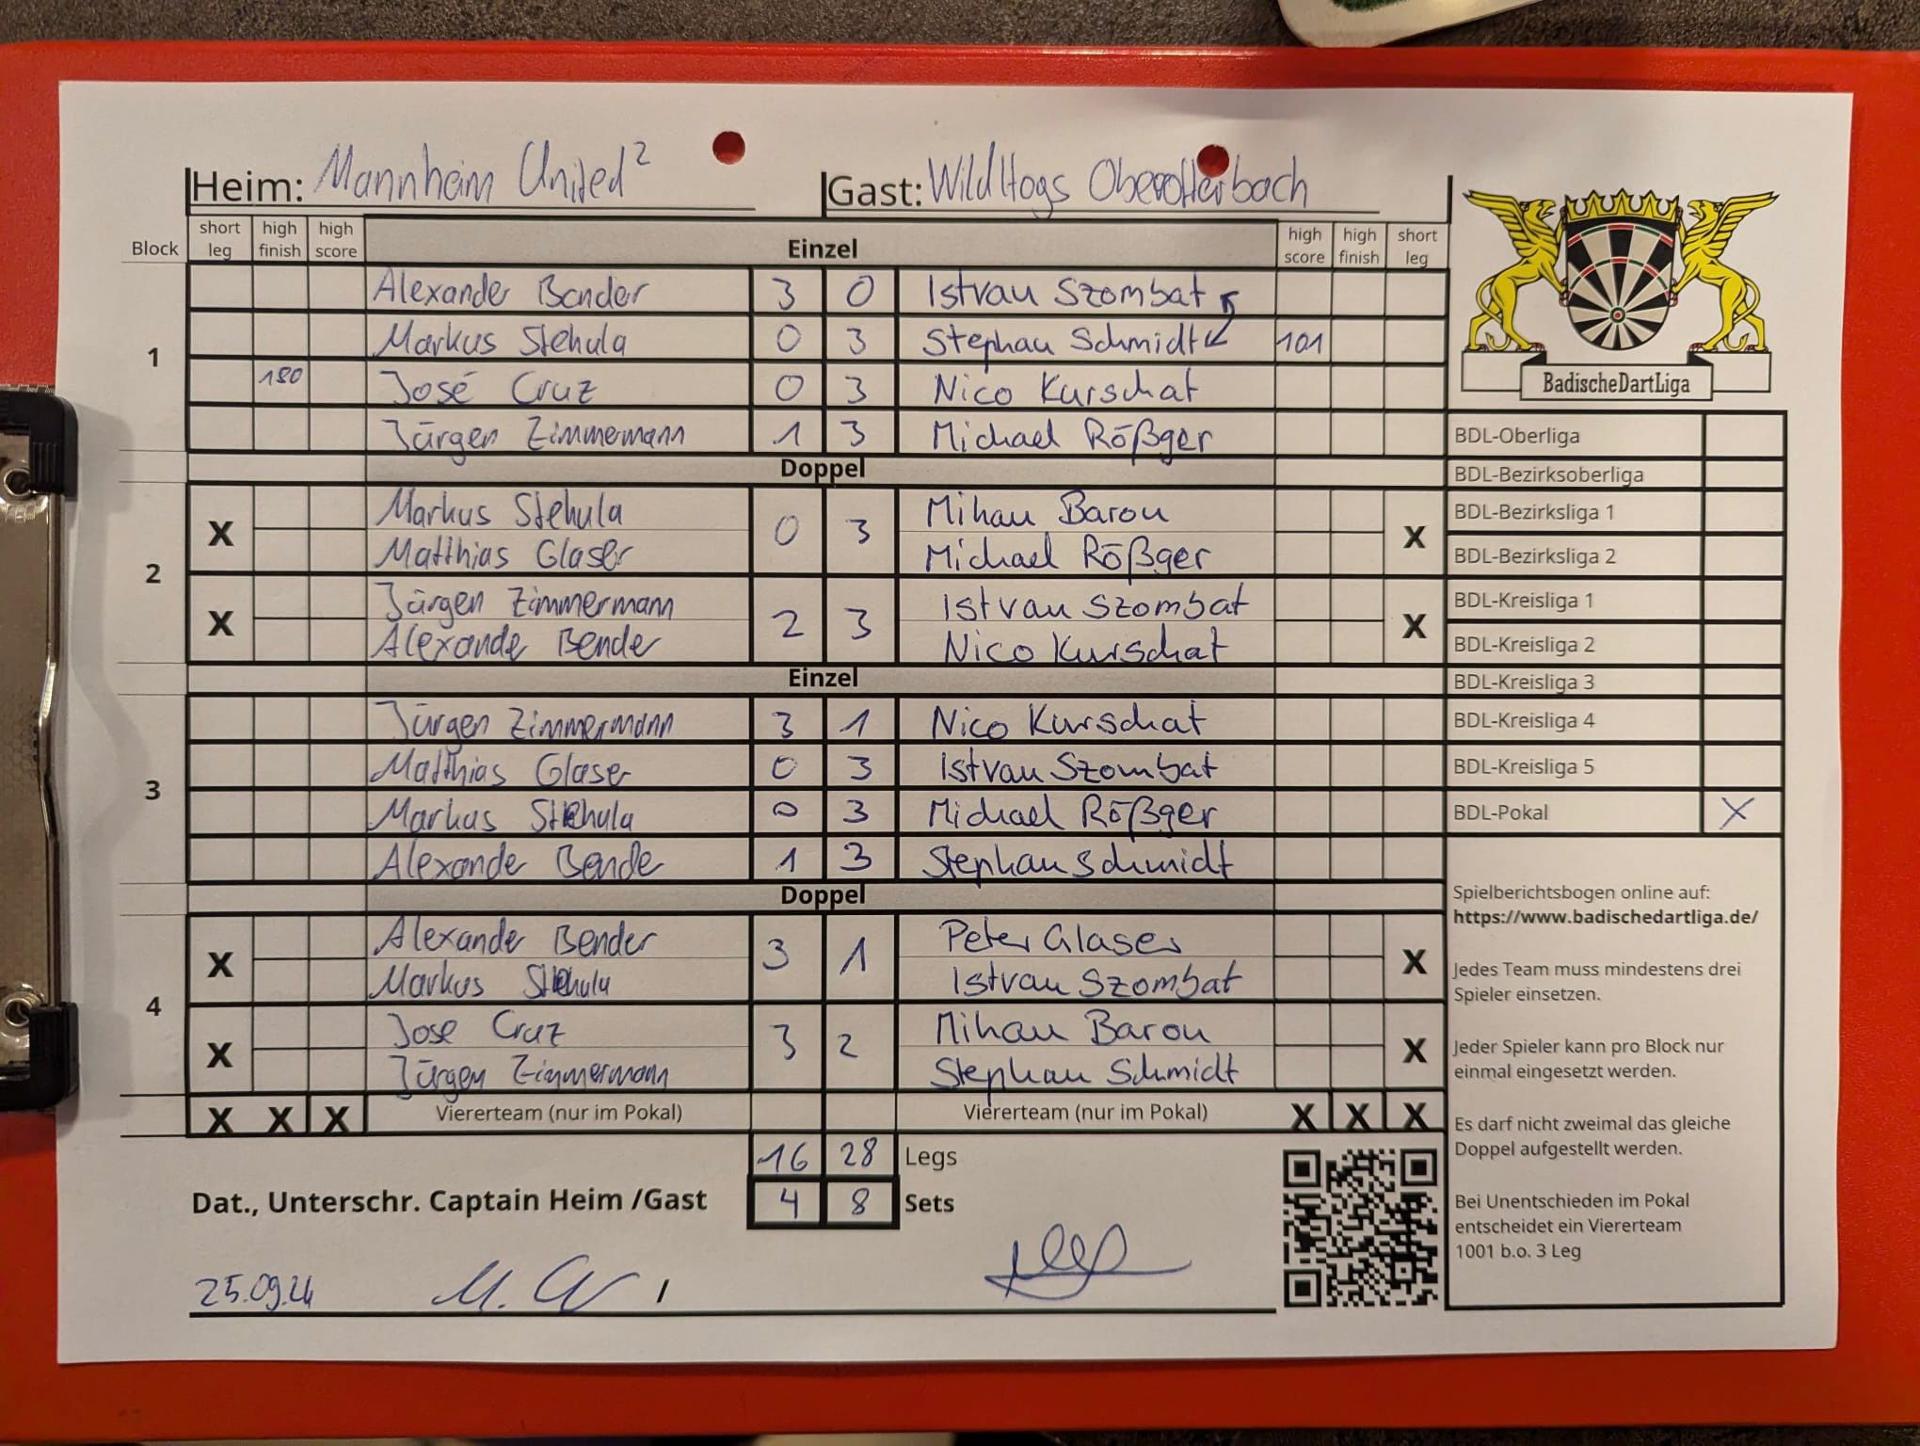 Heim: Mannheim United²
Gast: Wildhogs Oberotterbach
Block
short leg
high finish
high score
Einzel
high score
high finish
short leg
1
Alexander Bender 3 0 Istvan Szombat
Markus Stehula 0 3 Stephan Schmidt 101
180 José Cruz 0 3 Nico Kurschat
Jürgen Zimmermann 1 3 Michael Rößger
Doppel
2
X Markus Stehula 0 3 Mihau Barou X
Matthias Glaser Michael Rößger
X Jürgen Zimmermann 2 3 Istvan Szombat X
Alexande Bender Nico Kurschat
Einzel
3
Jürgen Zimmermann 3 1 Nico Kurschat
Matthias Glaser 0 3 Istvan Szombat
Markus Stehula 0 3 Michael Rößger
Alexande Bende 1 3 Stephan Schmidt
Doppel
4
X Alexande Bender 3 1 Peter Glaser X
Markus Stehula Istvan Szombat
X Jose Cruz 3 2 Mihau Barou X
Jürgen Zimmermann Stephan Schmidt
X X X Viererteam (nur im Pokal) Viererteam (nur im Pokal) X X X
16 28 Legs
Dat., Unterschr. Captain Heim /Gast 4 8 Sets
25.09.24 /
BadischeDartLiga
BDL-Oberliga
BDL-Bezirksoberliga
BDL-Bezirksliga 1
BDL-Bezirksliga 2
BDL-Kreisliga 1
BDL-Kreisliga 2
BDL-Kreisliga 3
BDL-Kreisliga 4
BDL-Kreisliga 5
BDL-Pokal X
Spielberichtsbogen online auf:
https://www.badischedartliga.de/
Jedes Team muss mindestens drei
Spieler einsetzen.
Jeder Spieler kann pro Block nur
einmal eingesetzt werden.
Es darf nicht zweimal das gleiche
Doppel aufgestellt werden.
Bei Unentschieden im Pokal
entscheidet ein Viererteam
1001 b.o. 3 Leg